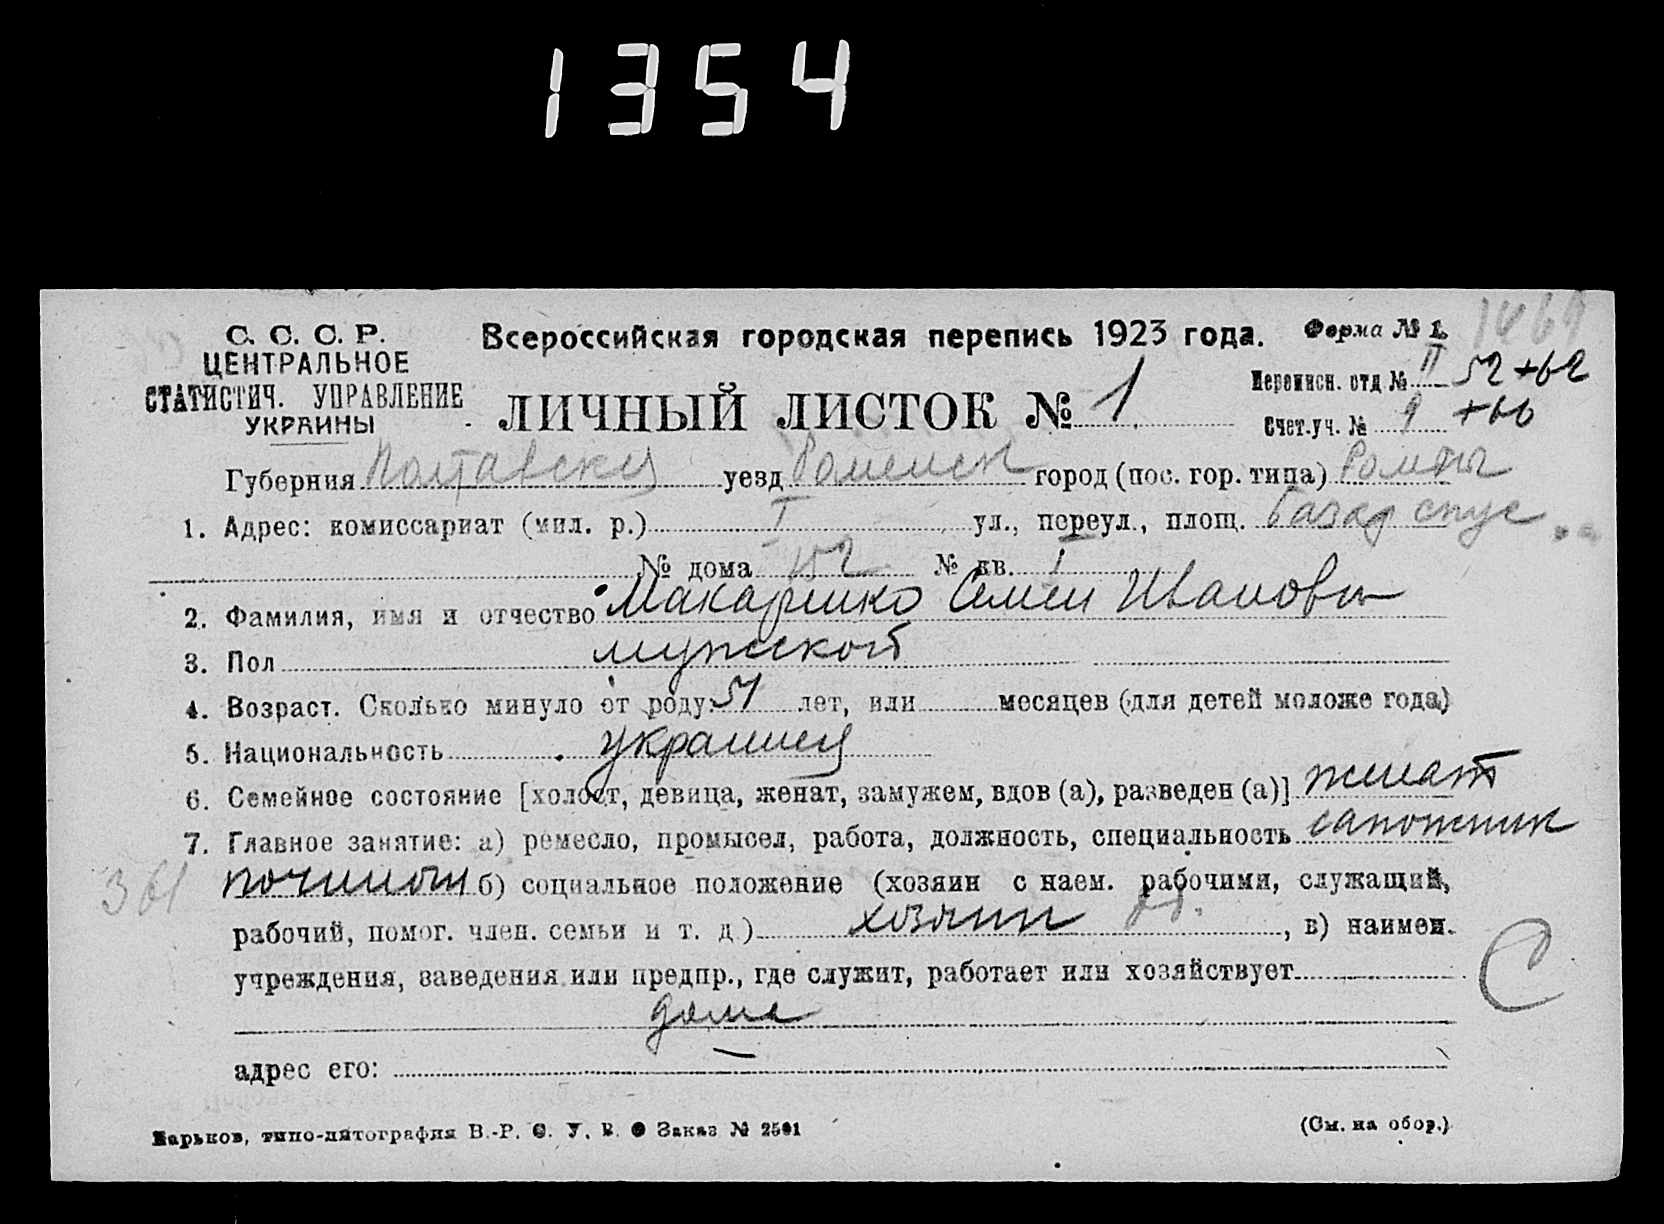 1354
С. С. С. Р.
ЦЕНТРАЛЬНОЕ
СТАТИСТИЧ. УПРАВЛЕНИЕ
УКРАИНЫ
Всероссийская городская перепись 1923 года. Форма № 1.
1469
ЛИЧНЫЙ ЛИСТОК № 1
Переписн. отд № II 52 +62
Счет.уч. № 9 +60
Губерния Полтавская уезд Роменск город (пос. гор. типа) Ромны
1. Адрес: комиссариат (мил. р.) I ул., переул., площ. Базар спус
№ дома 152 № кв. 1
2. Фамилия, имя и отчество Макаренко Семен Иванович
3. Пол мужской
4. Возраст. Сколько минуло от роду 51 лет, или месяцев (для детей моложе года)
5. Национальность украинец
6. Семейное состояние [холост, девица, женат, замужем, вдов (а), разведен (а)] женат
7. Главное занятие: а) ремесло, промысел, работа, должность, специальность сапожник
361 починочн б) социальное положение (хозяин с наем. рабочими, служащий,
рабочий, помог. член. семьи и т. д.) хозяин , в) наимен.
учреждения, заведения или предпр., где служит, работает или хозяйствует С
дома
адрес его: —
Харьков, типо-литография В.-Р. С. У. В. Заказ № 2501 (См. на обор.)